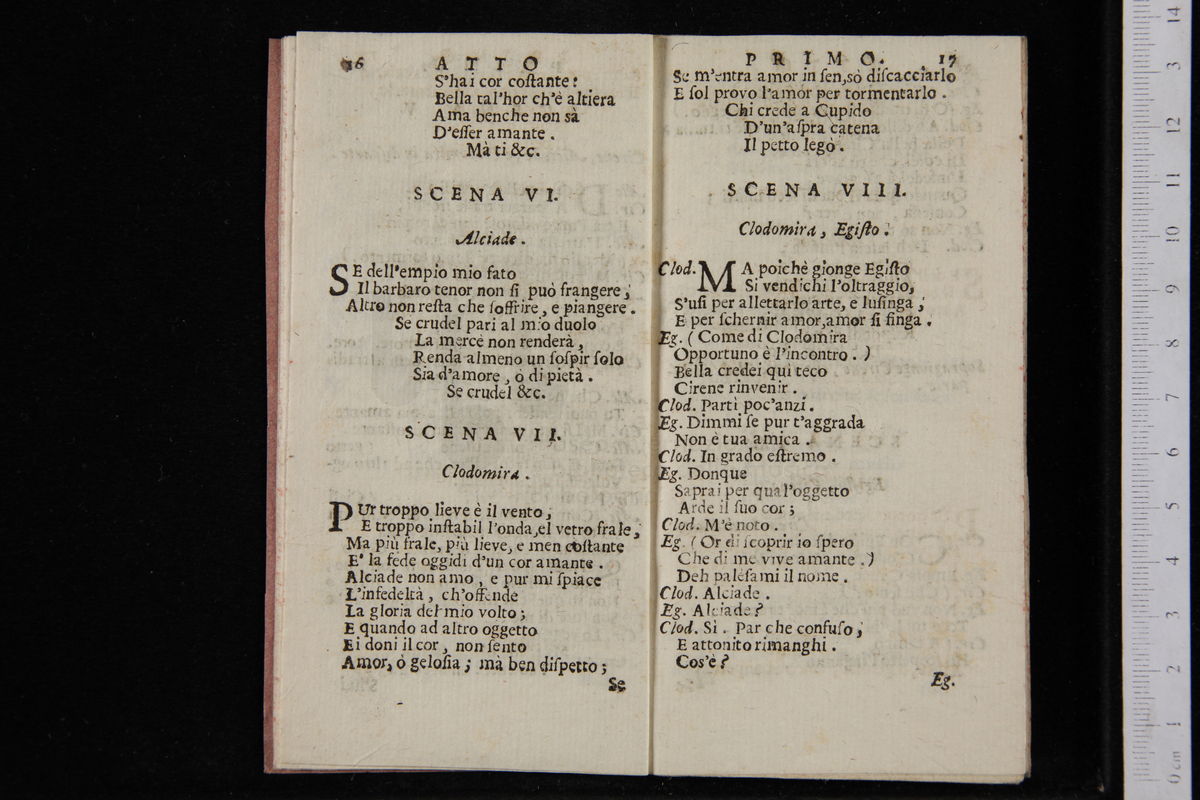 16 ATTO
S'hai cor coſtante:
Bella tal'hor ch'è altiera
Ama benche non sà
D'eſſer amante.
Mà ti &c.
SCENA VI.
Alciade.
SE dell'empio mio fato
Il barbaro tenor non ſi può frangere;
Altro non reſta che ſoffrire, e piangere.
Se crudel pari al mio duolo
La mercè non renderà,
Renda almeno un ſoſpir ſolo
Sia d'amore, ò di pietà.
Se crudel &c.
SCENA VII.
Clodomira.
PUr troppo lieve è il vento,
E troppo inſtabil l'onda, el vetro frale,
Ma più frale, più lieve, e men coſtante
E' la fede oggidi d'un cor amante.
Alciade non amo, e pur mi ſpiace
L'infedeltà, ch'offende
La gloria del mio volto;
E quando ad altro oggetto
Ei doni il cor, non ſento
Amor, ò geloſia; mà ben diſpetto;
Se
PRIMO. 17
Se m'entra amor in ſen, sò diſcacciarlo
E ſol provo l'amor per tormentarlo.
Chi crede a Cupido
D'un'aſpra catena
Il petto legò.
SCENA VIII.
Clodomira, Egiſto.
Clod. MA poichè gionge Egiſto
Si vendichi l'oltraggio,
S'uſi per allettarlo arte, e luſinga;
E per ſchernir amor, amor ſi finga.
Eg. (Come di Clodomira
Opportuno è l'incontro.)
Bella credei qui teco
Cirene rinvenir.
Clod. Partì poc'anzi.
Eg. Dimmi ſe pur t'aggrada
Non è tua amica.
Clod. In grado eſtremo.
Eg. Donque
Saprai per qual'oggetto
Arde il ſuo cor;
Clod. M'è noto.
Eg. (Or di ſcoprir io ſpero
Che di me vive amante.)
Deh paleſami il nome.
Clod. Alciade.
Eg. Alciade?
Clod. Sì. Par che confuſo,
E attonito rimanghi.
Cos'è?
Eg.
0 cm 1 2 3 4 5 6 7 8 9 10 11 12 13 14